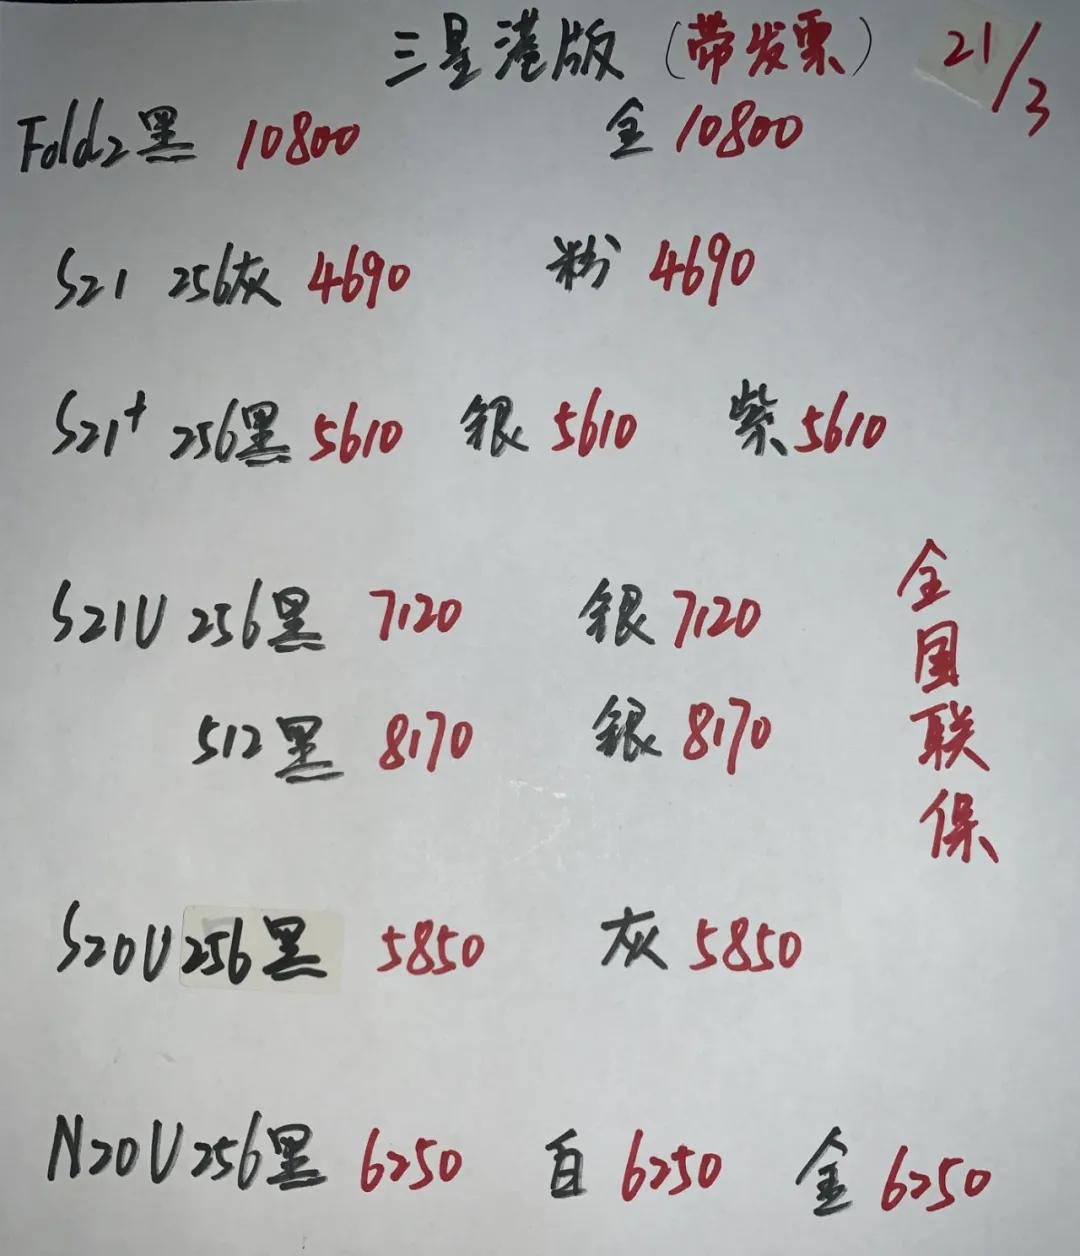 三星港版（带发票） 21/3
Fold2黑 10800 金 10800
S21 256灰 4690 粉 4690
S21+ 256黑 5610 银 5610 紫 5610
S21U 256黑 7120 银 7120
512黑 8170 银 8170
全国联保
S20U 256黑 5850 灰 5850
N20U 256黑 6250 白 6250 金 6250